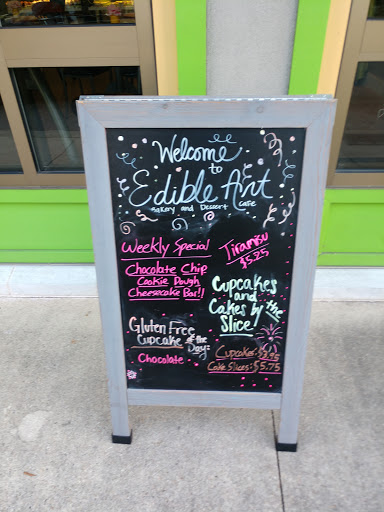 Welcome
to
Edible Art
Bakery and Dessert Cafe
Weekly Special
Chocolate Chip
Cookie Dough
Cheesecake Bar!!
Gluten Free
Cupcake of the
Day:
Chocolate
Tiramisu
$5.25
Cupcakes
and
Cakes by the
Slice
Cupcakes: $3.95
Cake Slices: $5.75